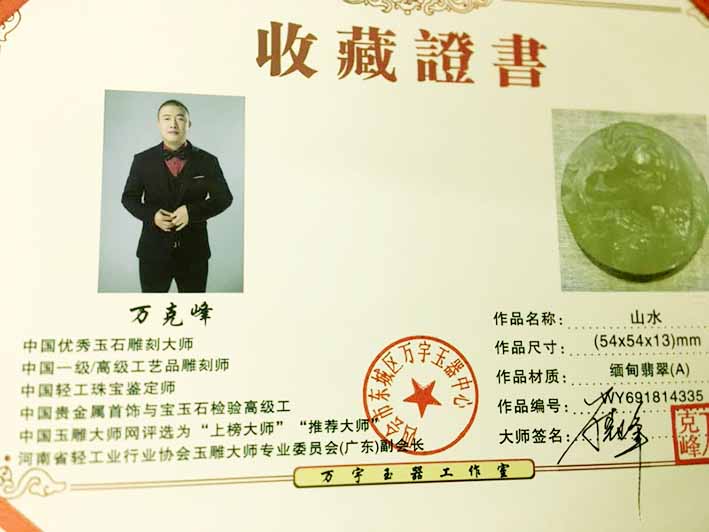 收藏證書
万克峰
中国优秀玉石雕刻大师
中国一级/高级工艺品雕刻师
中国轻工珠宝鉴定师
中国贵金属首饰与宝玉石检验高级工
中国玉雕大师网评选为“上榜大师”“推荐大师”
河南省轻工业行业协会玉雕大师专业委员会(广东)副会长
作品名称： 山水
作品尺寸： (54x54x13)mm
作品材质： 缅甸翡翠(A)
作品编号： WY691814335
大师签名：
克峰
市东城区万宇玉器中心
万宇玉器工作室